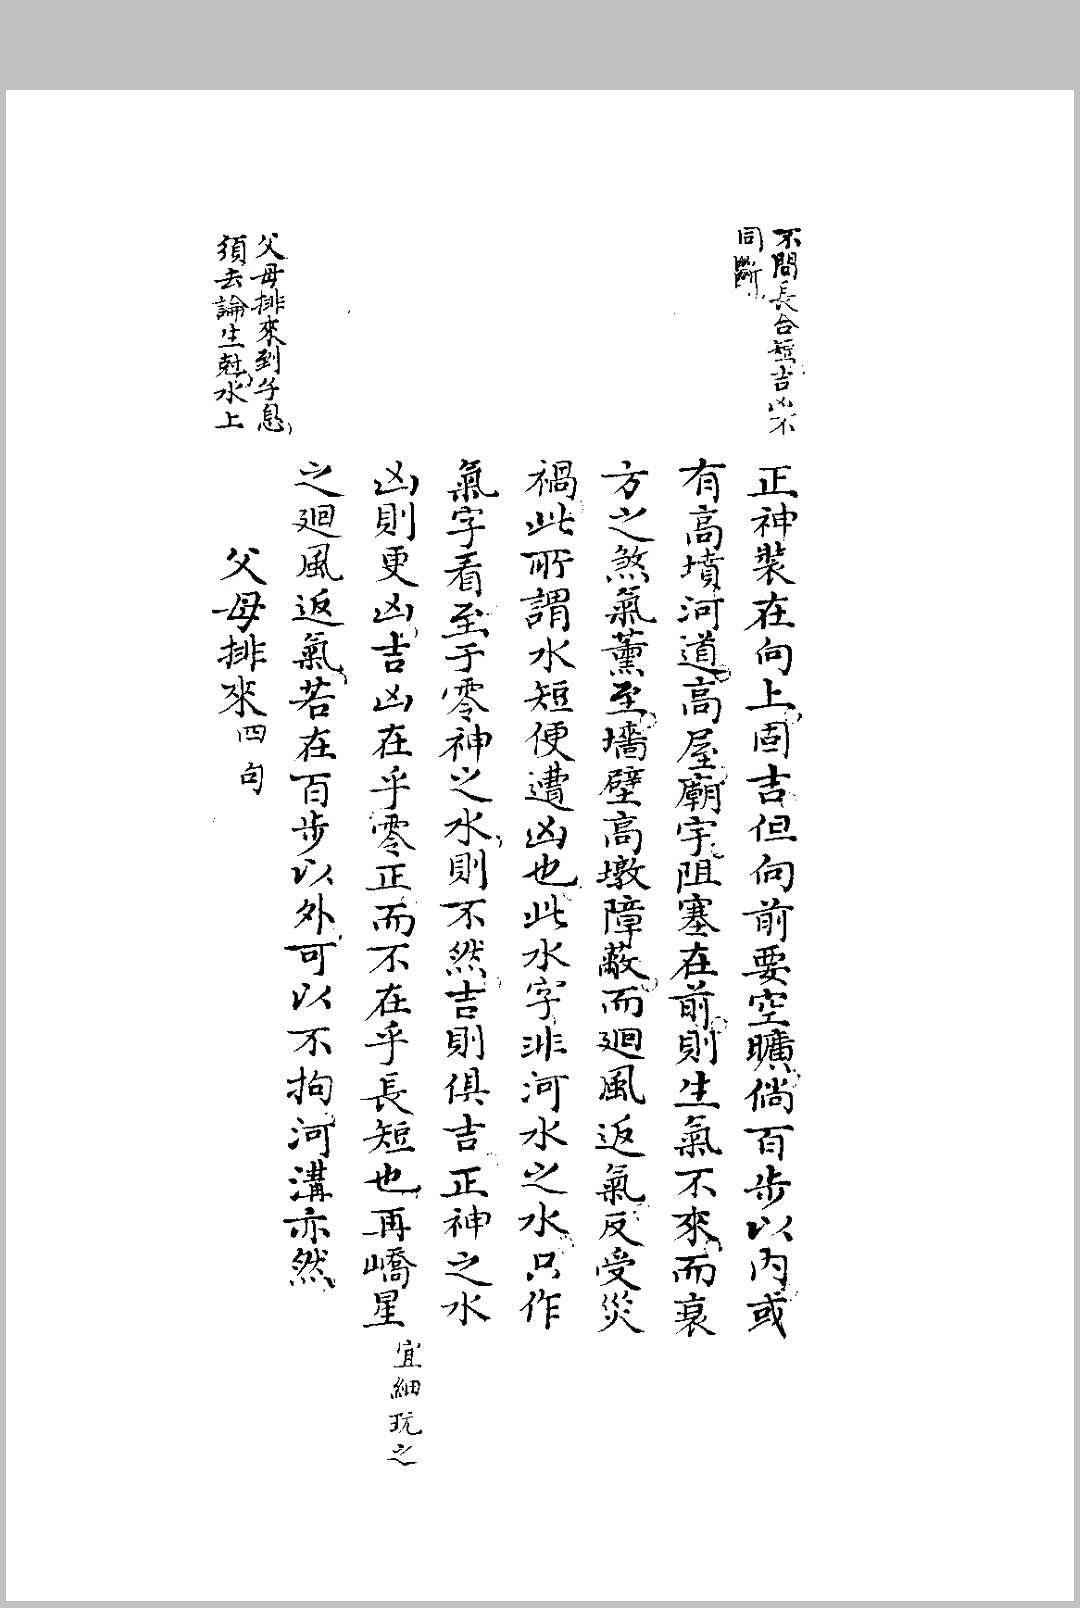 不問長合短吉凶不
同斷
正神裝在向上固吉但向前要空曠倘百步以內或
有高墳河道高屋廟宇阻塞在前則生氣不來而衰
方之煞氣薰至墻壁高墩障蔽而廻風返氣反受災
禍此所謂水短便遭凶也此水字非河水之水只作
氣字看至于零神之水則不然吉則俱吉正神之水
凶則更凶吉凶在乎零正而不在乎長短也再嶠星
宜細玩之
之廻風返氣若在百步以外可以不拘河溝亦然
父母排來到子息
須去論生尅水上
父母排來四句